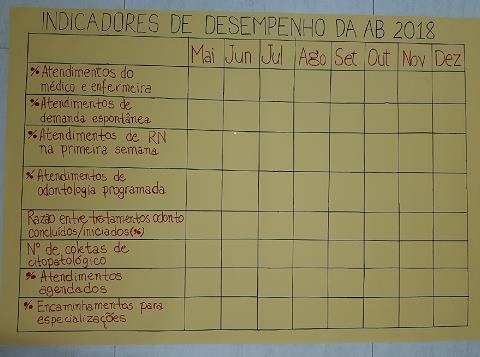 INDICADORES DE DESEMPENHO DA AB 2018
Mai Jun Jul Ago Set Out Nov Dez
% Atendimentos do
médico e enfermeira
% Atendimentos de
demanda espontânea
% Atendimentos de RN
na primeira semana
% Atendimentos de
odontologia programada
Razão entre tratamentos odonto
concluídos/iniciados(%)
Nº de coletas de
citopatológico
% Atendimentos
agendados
% Encaminhamentos para
especializações